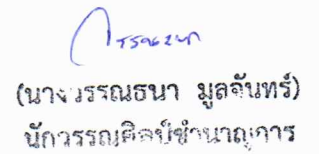 (นางวรรณธนา มูลจันทร์)
นักวรรณศิลป์ชำนาญการ